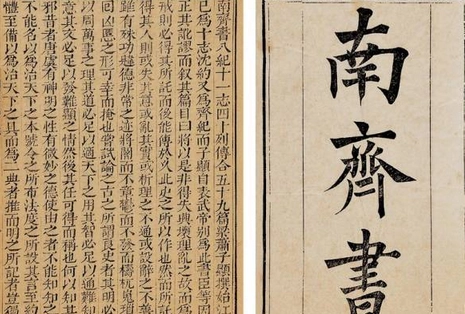 南齊書
南齊書八紀十一志四十列傳合五十九篇梁蕭子顯撰始江
已為十志沈約又為齊紀而子顯自表武帝別為此書臣等因
正其訛謬而敘其篇目曰將以是非得失興壞理亂之故而為
戒則必得其所託而後能傳於久此史之所以作也然而所託
得其人則或失其意或亂其實或析理之不通或設辭之不善
雖有殊功韙德非常之迹將闇而不章鬱而不發而檮杌嵬瑣
回凶慝之形可幸而掩也嘗試論之古之所謂良史者其明必
以周萬事之理其道必足以適天下之用其智必足以通難知
意其文必足以發難顯之情然後其任可得而稱也何以知其
邪昔者唐虞有神明之性有微妙之德使由之者不能知知之
不能名以為治天下之本號令之所布法度之所設其言至約
體至備以為治天下之具而為二典者推而明之所記者豈獨